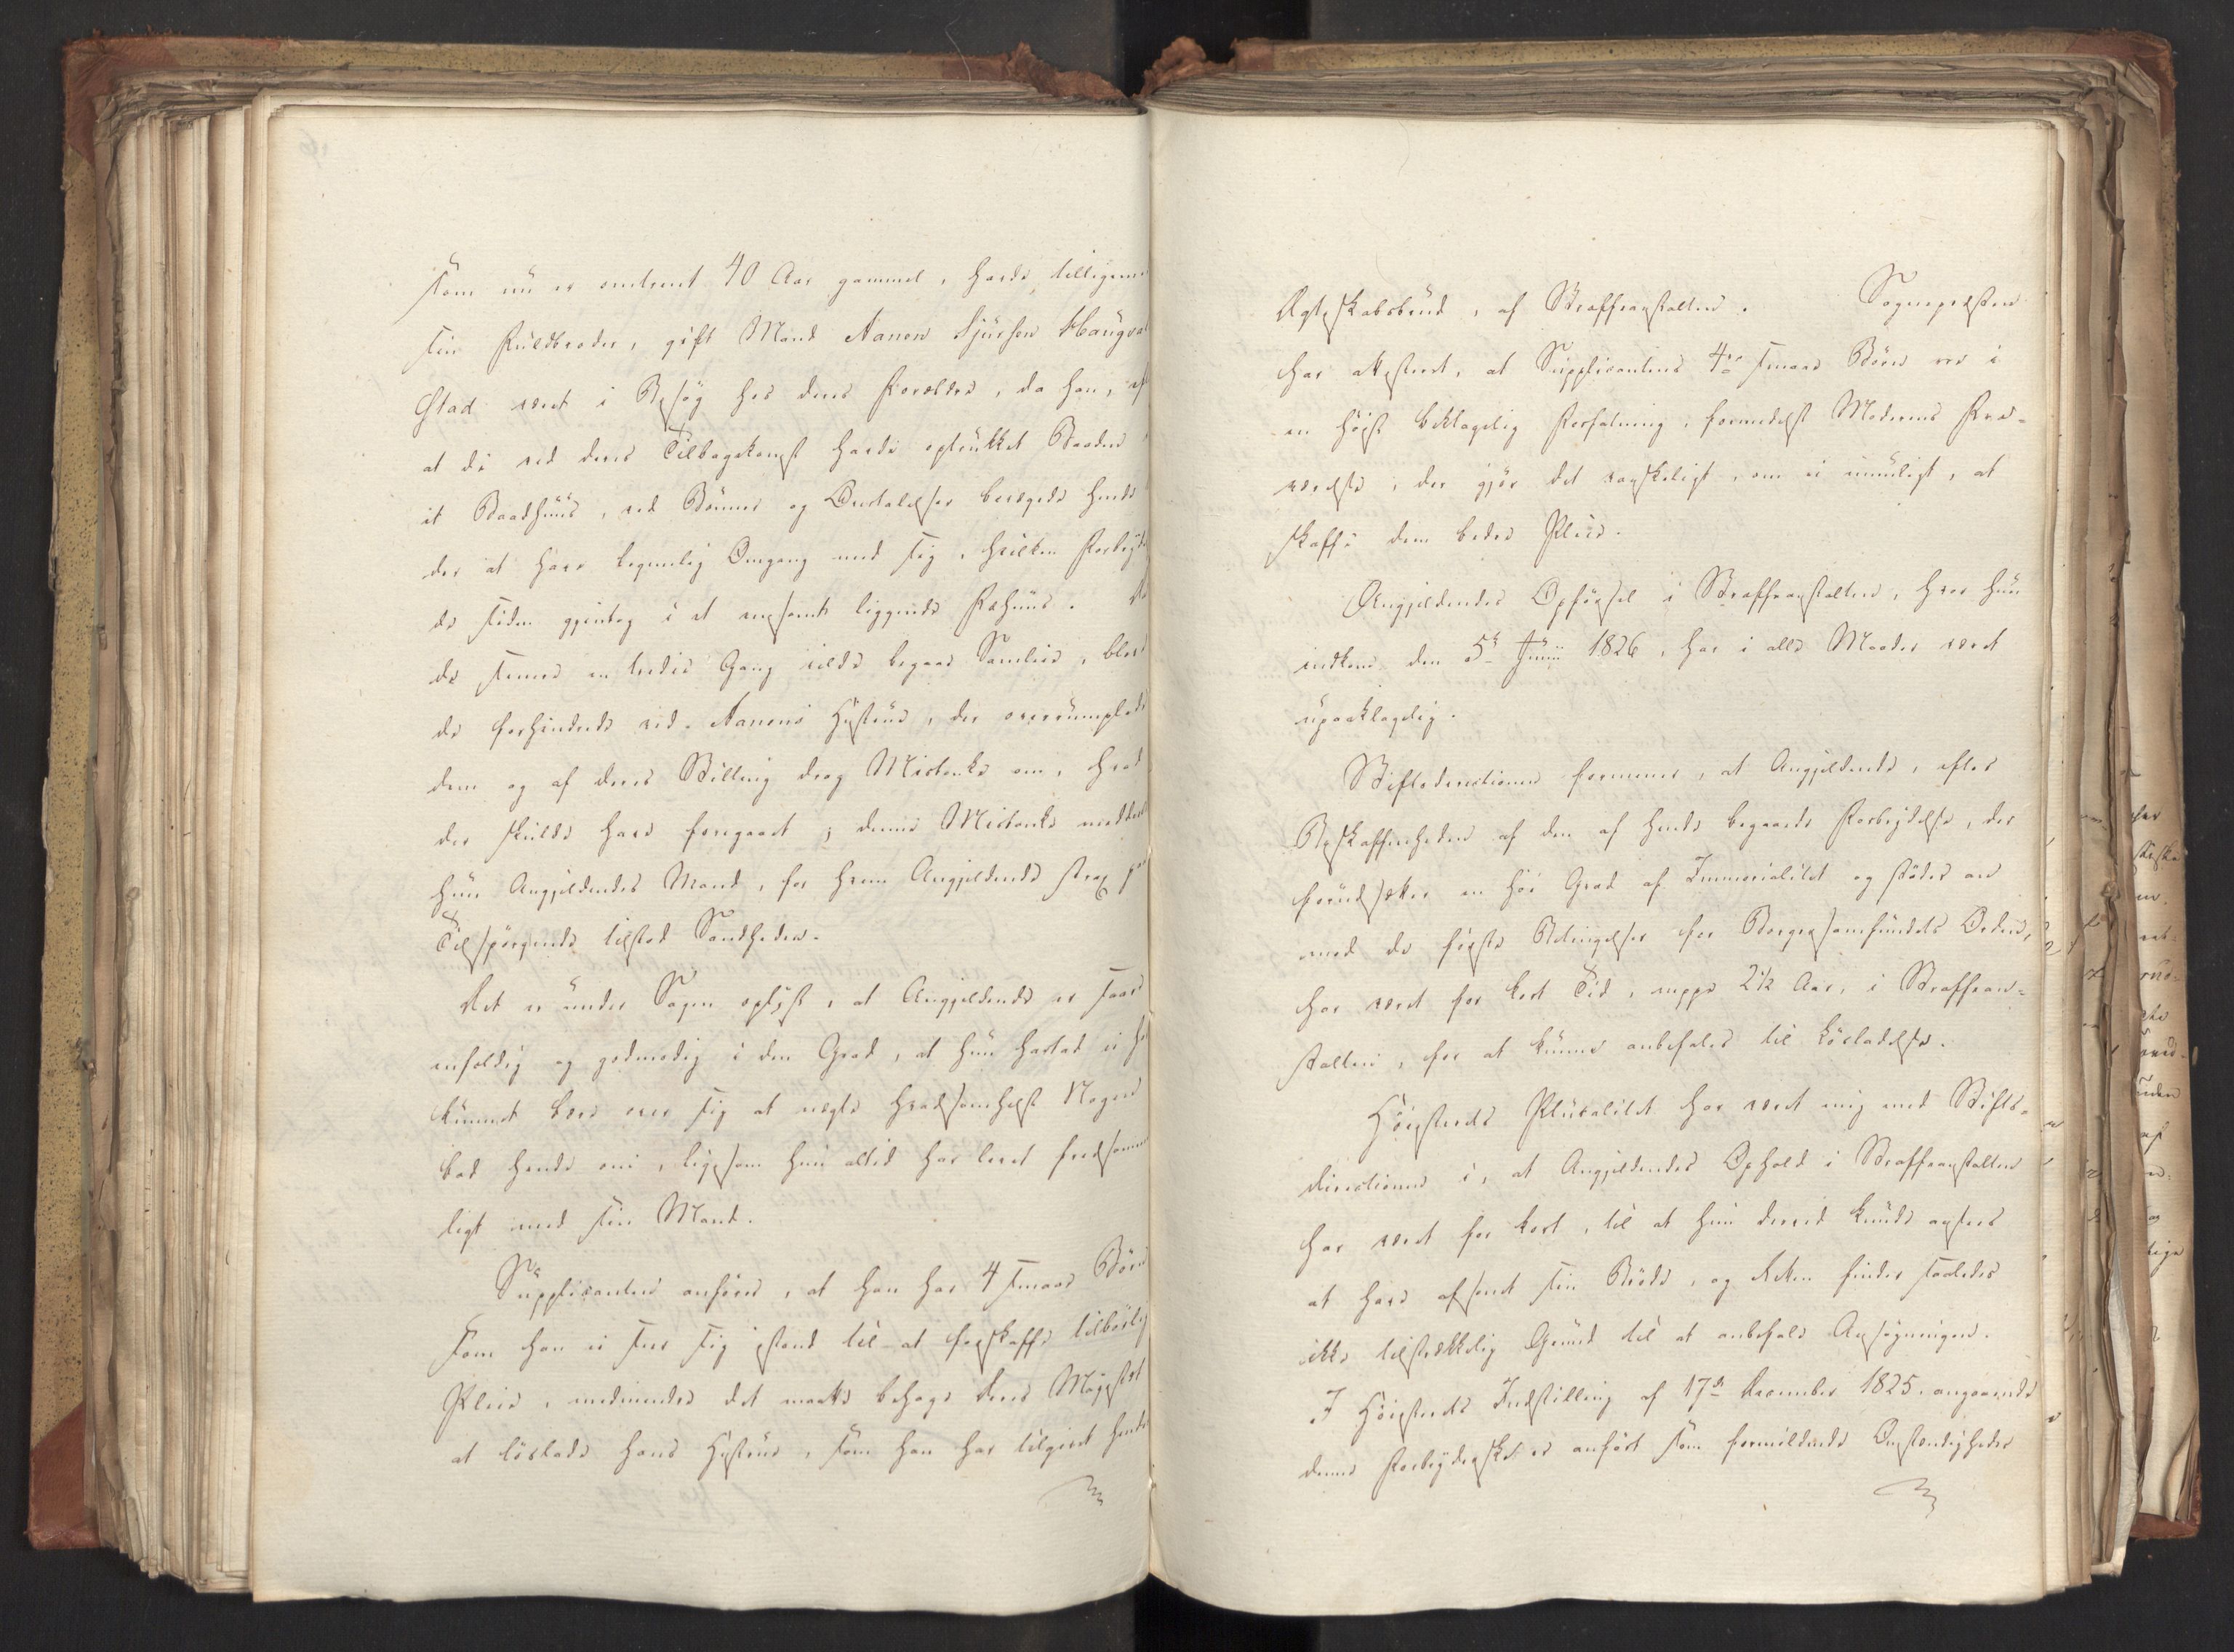 som nu er omtrent 40 Aar gammel, havde, tilligeme
sin Fuldbroder, gift Mand Aanen Sjursen Haugva
Stad været i Besøg hos deres Forældre, da han, eft
at de ved deres Tilbagekomst havde optrukket Baaden
et Baadhuus, ved Bønner og Overtalelser bevægede hende
der at have legemlig Omgang med sig, hvilken Forbryde
de siden gjentog i et eensomt liggende Fæhuus. Da
de senere en tredie Gang vilde begaae Samleie, bleve
de forhindrede ved Aanens Hustrue, der overrumplede
dem og af deres Stilling drog Mistanke om, hvad
der skulde have foregaaet; denne Mistanke meddeel
hun Angjeldendes Mand, for hvem Angjeldende strax paa
Tilspørgende tilstod Sandheden.
Det er under Sagen oplyst, at Angjeldende er saare
enfoldig og godmodig i den Grad, at hun hartad ei ha
kunnet bære over sig at negte hvadsomhelst Nogen
bad hende om, ligesom hun altid har levet fredsomme
ligt med sin Mand.
Supplicanten anfører, at han har 4 smaae Børn
som han ei seer sig istand til at forskaffe tilbørlig
Pleie, andragende det maatte behage Deres Majestæt
at løslade hans Hustrue, som han har tilgivet hendes
Ægteskabsbrud, af Straffeanstalten. Sognepræsten
har attesteret, at Supplicantens 4re smaae Børn ere i
en høist beklagelig Forfatning, formedelst Moderens Fra-
værelse, der gjør det vanskeligt, om ei umuligt, at
skaffe dem bedre Pleie.
Angjeldendes Opførsel i Straffeanstalten, hvor hun
indkom den 5te Junii 1826, har i alle Maader været
upaaklagelig.
Stiftsdirectionen formener, at Angjeldende, efter
Beskaffenheden af den af hende begaaede Forbrydelse, der
forudsætter en høi Grad af Immoralitet og støder an
mod de første Betingelser for Borgersamfundets Orden,
har været for kort Tid, neppe 2 1/2 Aar, i Straffean-
stalten, for at kunne anbefales til Løsladelse.
Høiesterets Pluralitet har været enig med Stifts-
directionen i, at Angjeldendes Ophold i Straffeanstalten
har været for kort, til at hun derved kunde ansees
at have afsonet sin Brøde, og Retten finder saaledes
ikke tilstrækkelig Grund til at anbefale Ansøgningen.
I Høiesterets Indstilling af 17de December 1825 angaaende
denne Forbryderske er anført som formildende Omstændigheder